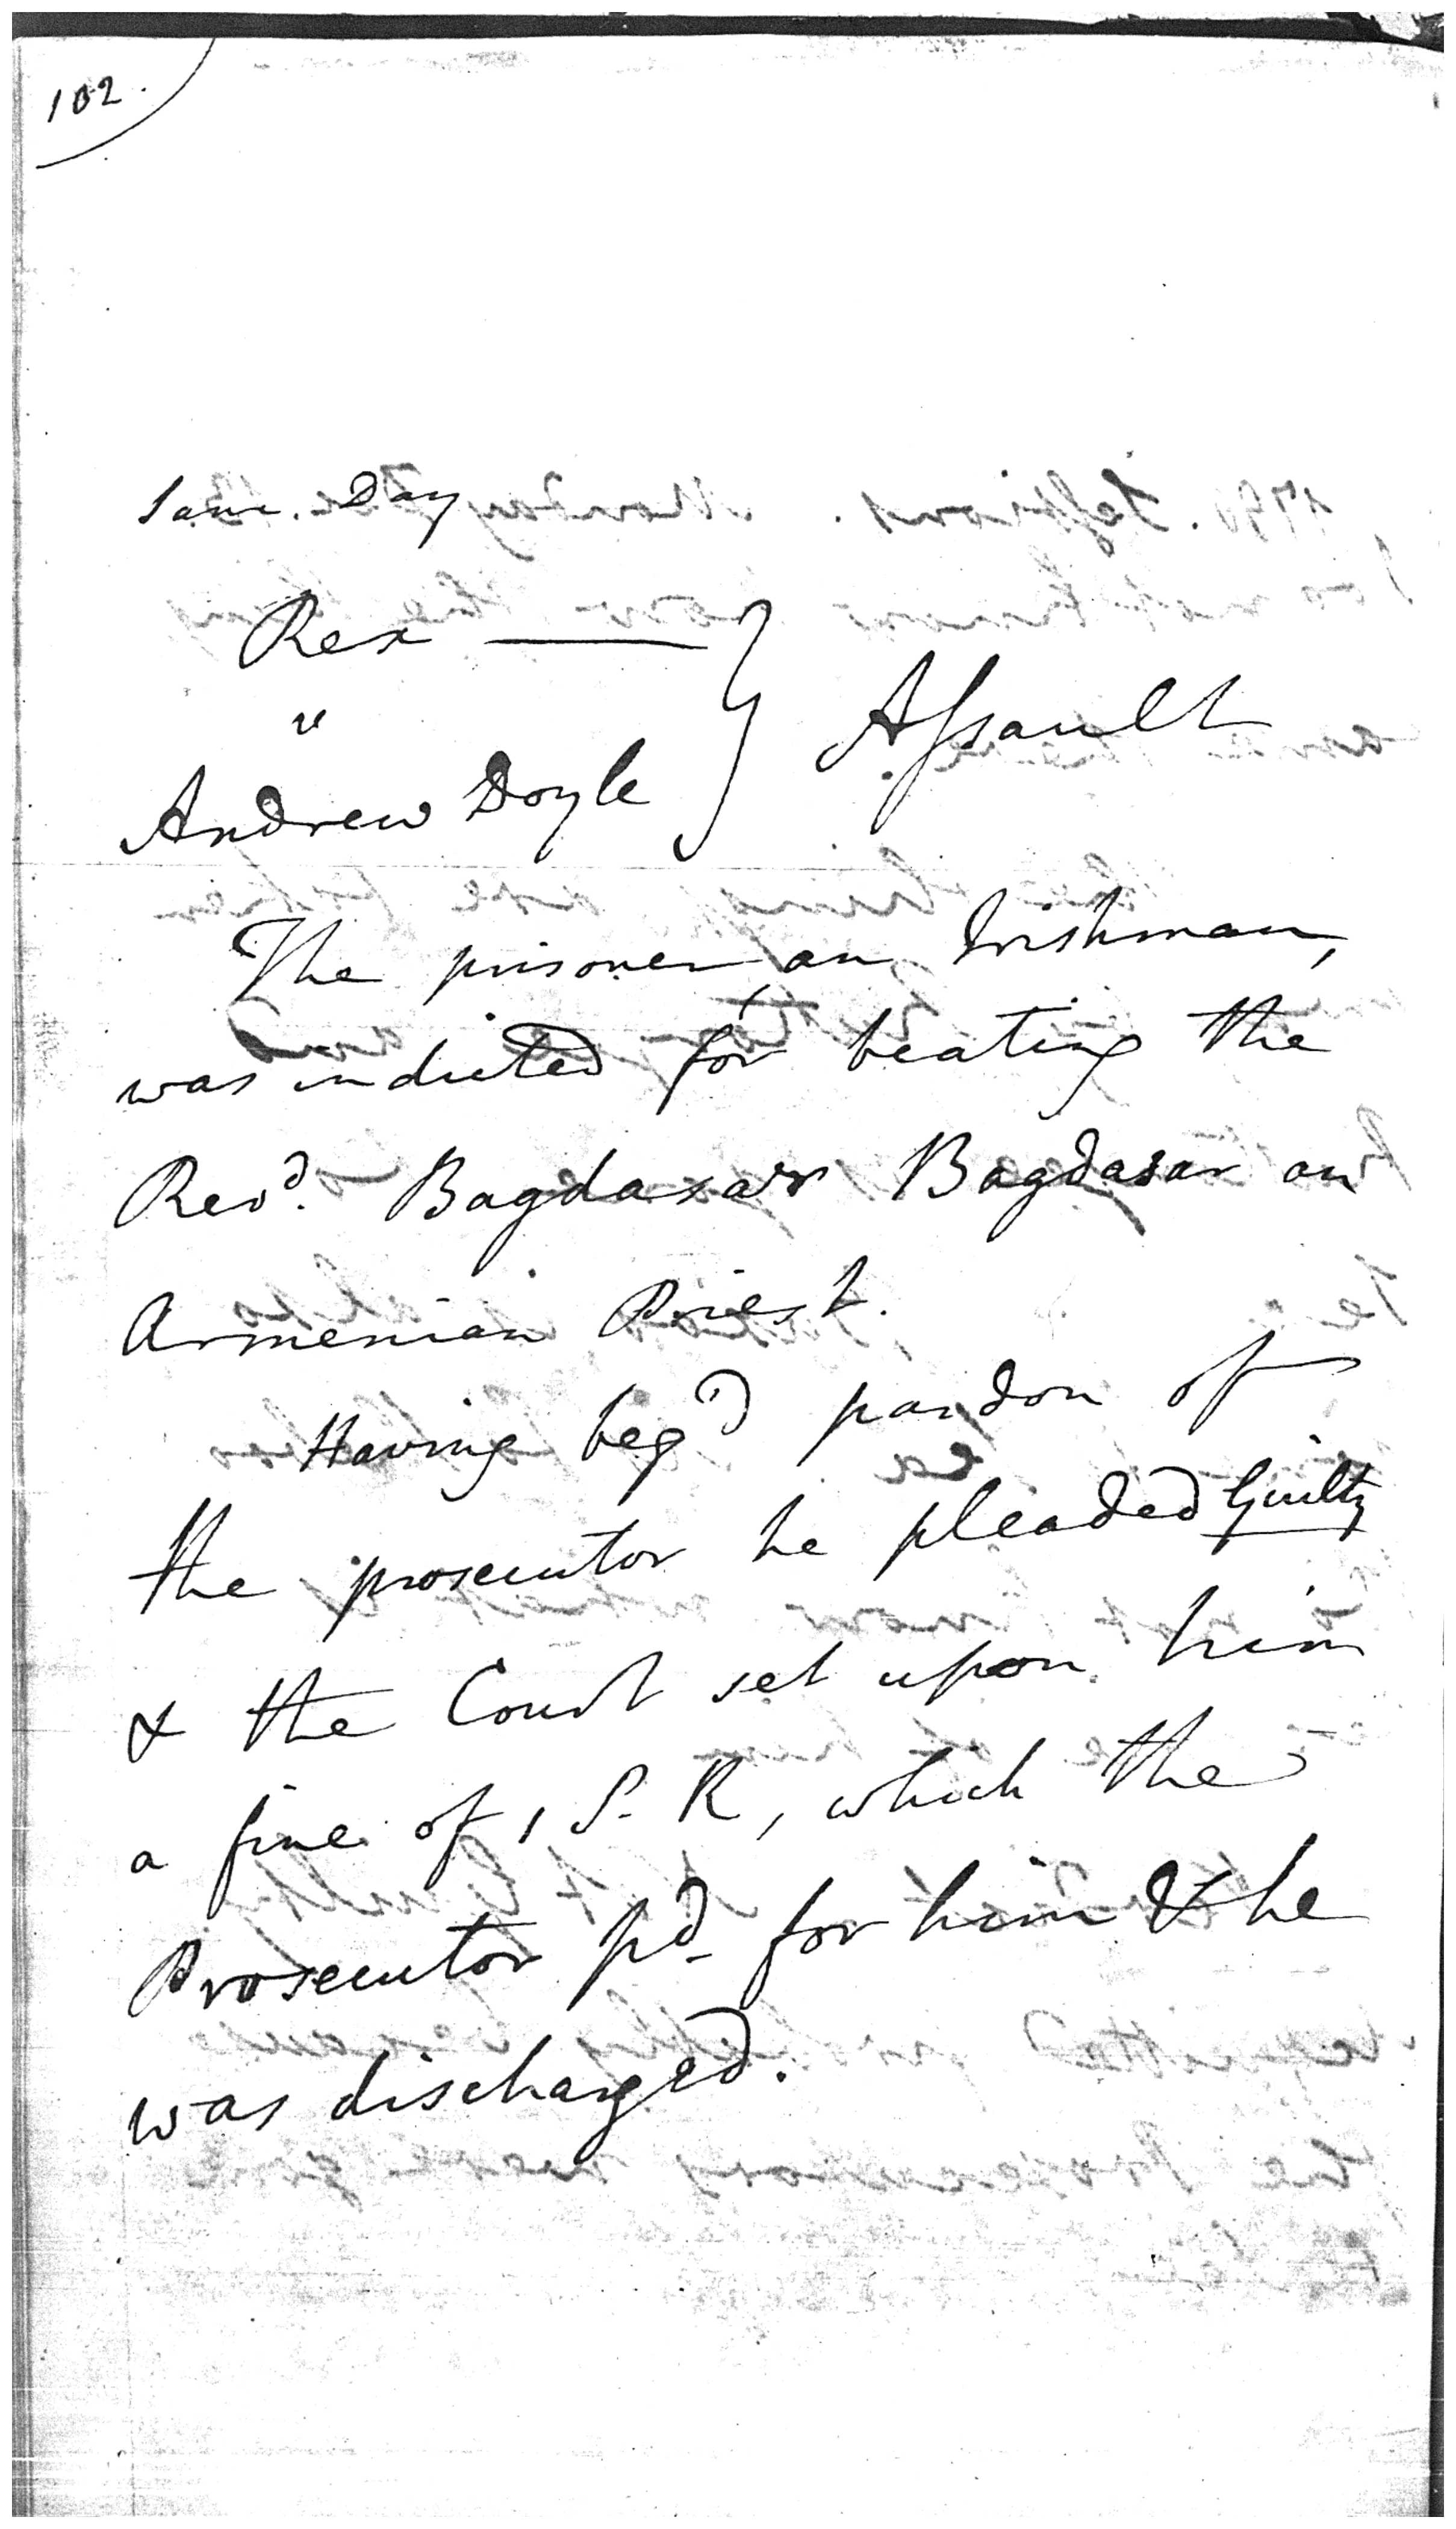 102.
Same Day
Rex —
v
Andrew Doyle } Assault
The prisoner, an Irishman,
was indicted for beating the
Revd. Bagdasar Bagdasar an
Armenian Priest.
Having beg'd pardon of
the prosecutor he pleaded Guilty
& the Court set upon him
a fine of 1 S. R, which the
Prosecutor pd for him & he
was discharged.